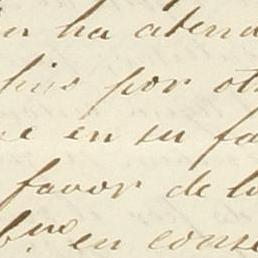 ha atend
por ot
en su fa
favor de lo
en conse